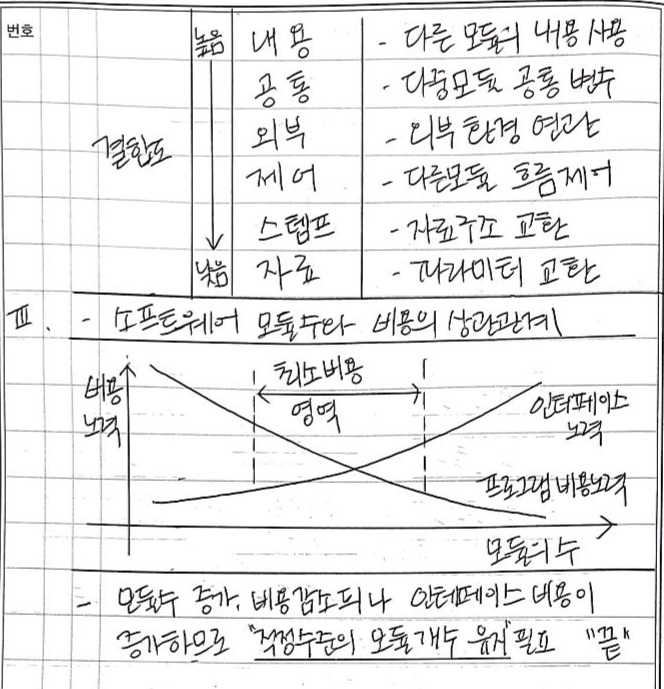 번호
높음 내용 - 다른 모듈의 내용 사용
공통 - 다중모듈 공통 변수
외부 - 외부 환경 연관
결합도 제어 - 다른모듈 흐름제어
스탬프 - 자료구조 교환
낮음 자료 - 파라미터 교환
Ⅲ. - 소프트웨어 모듈수와 비용의 상관관계
비용
노력
최소비용
영역
인터페이스
노력
프로그램 비용노력
모듈의 수
- 모듈수 증가, 비용감소되나 인터페이스 비용이
증가하므로 "적정수준의 모듈개수 유지" 필요 "끝"